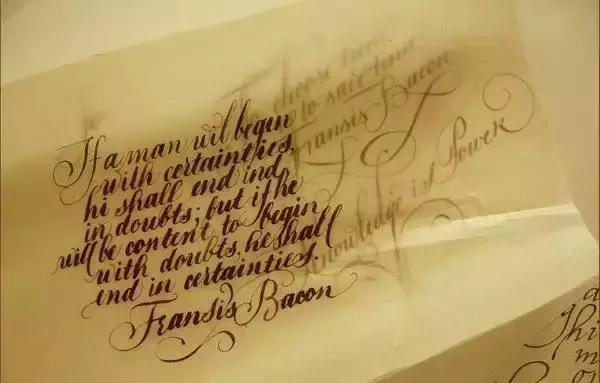 If a man wil begin
with certainties,
hi shall end ind
in doubts; but if he
will be content to begin
with doubts, he shall
end in certainties.
Fransis Bacon
To choose time
to save time
Fransis Bacon
Knowledge is Power